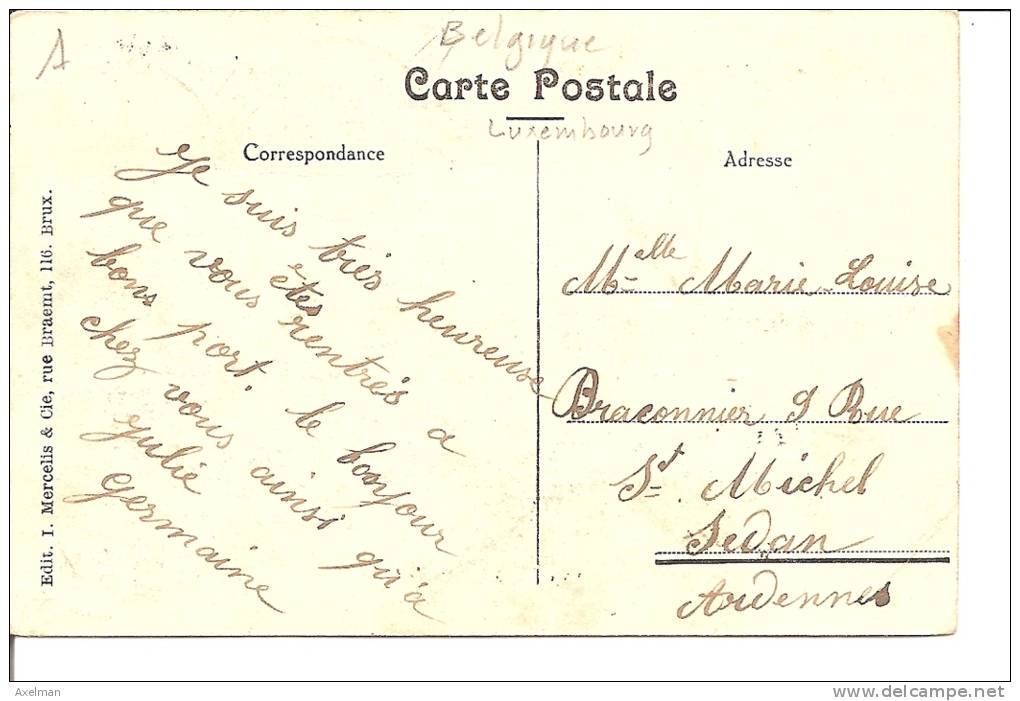 A
Belgique
Carte Postale
Luxembourg
Correspondance
Je suis très heureuse
que vous êtes rentrés a
bons port. le bonjour
chez vous ainsi qu'à
Julie
Germaine
Adresse
Melle Marie-Louise
Braconnier 9 Rue
St. Michel
Sedan
Ardennes
Edit. I. Mercelis & Cie, rue Braemt, 116. Brux.
Axelman
http://www.delcampe.net